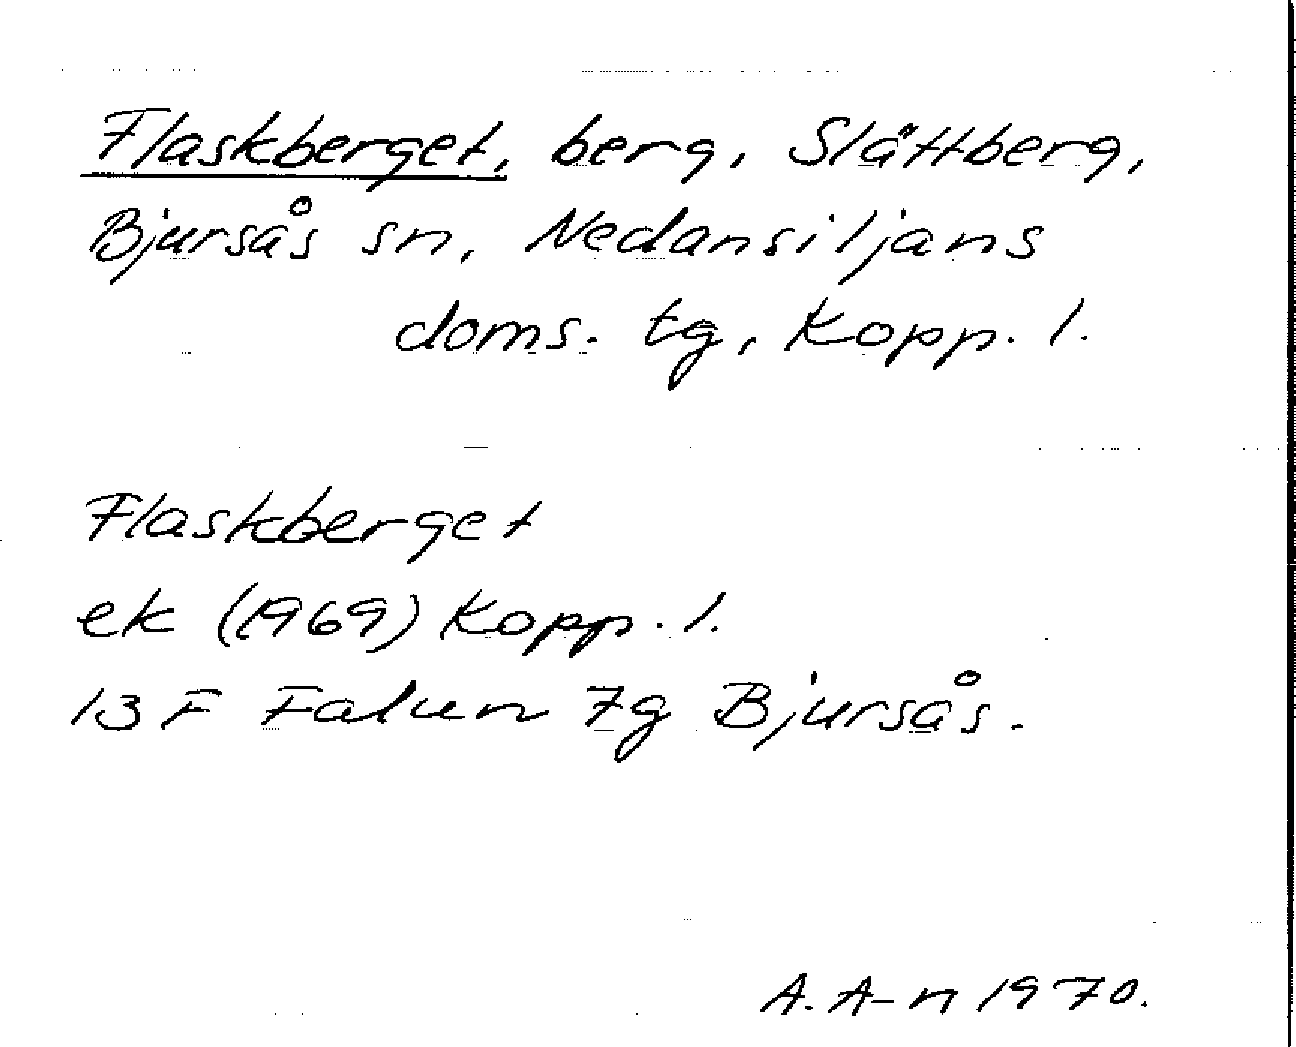 Flaskberget, berg, Slättberg,
Bjursås sn, Nedansiljans
doms. tg, Kopp. l.
Flaskberget
ek (1969) Kopp. l.
13 F Falun 7g Bjursås.
A. A-n 1970.